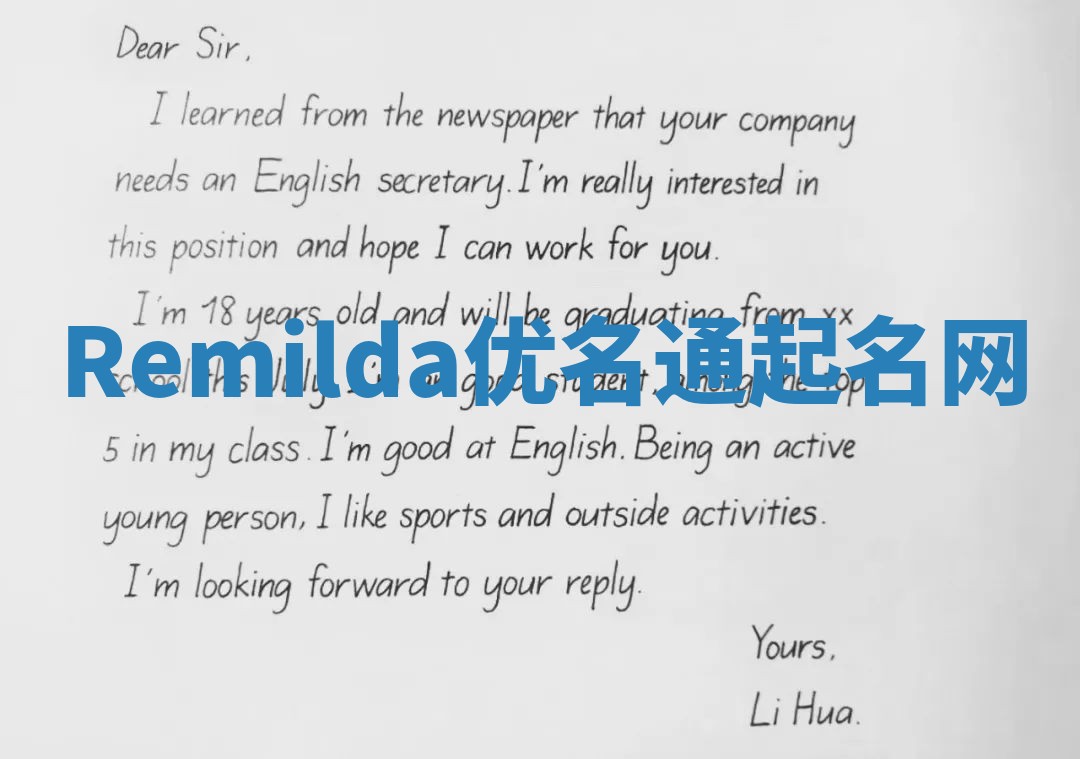 Dear Sir,
I learned from the newspaper that your company
needs an English secretary. I'm really interested in
this position and hope I can work for you.
I'm 18 years old and will be graduating from xx
Remilda优名通起名网
school this July. I'm a good student, among the top
5 in my class. I'm good at English. Being an active
young person, I like sports and outside activities.
I'm looking forward to your reply.
Yours,
Li Hua.